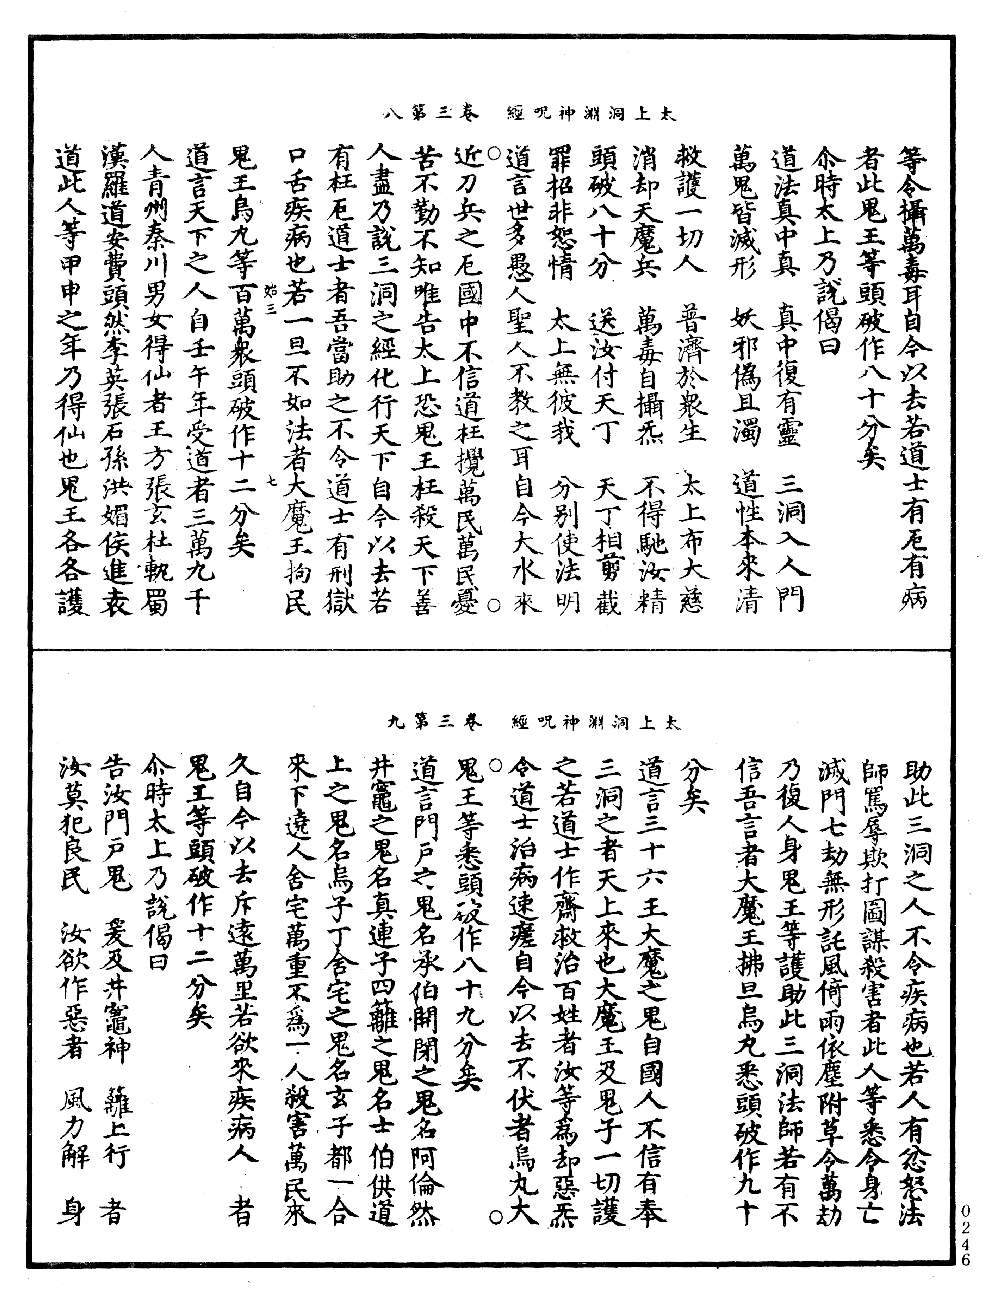 太上洞淵神呪經　卷三第八
等令攝萬毒耳自今以去若道士有厄有病
者此鬼王等頭破作八十分矣
尒時太上乃說偈曰
道法真中真　真中復有靈　三洞入人門
萬鬼皆滅形　妖邪僞且濁　道性本來清
救護一切人　普濟於衆生　太上布大慈
消却天魔兵　萬毒自攝炁　不得馳汝精
頭破八十分　送汝付天丁　天丁相剪截
罪招非恕情　太上無彼我　分別使法明
道言世多愚人聖人不教之耳自今大水來
近刀兵之厄國中不信道枉攪萬民萬民憂
苦不勤不知唯告太上恐鬼王枉殺天下善
人盡乃說三洞之經化行天下自今以去若
有枉厄道士者吾當助之不令道士有刑獄
口舌疾病也若一旦不如法者大魔王拘民
始三　七
鬼王烏九等百萬衆頭破作十二分矣
道言天下之人自壬午年受道者三萬九千
人青州秦川男女得仙者王方張玄杜軌蜀
漢羅道安費頭然李英張石孫洪媚侯進袁
道此人等甲申之年乃得仙也鬼王各各護
太上洞淵神呪經　卷三第九
助此三洞之人不令疾病也若人有忿怒法
師罵辱欺打圖謀殺害者此人等悉令身亡
滅門七劫無形託風倚雨依塵附草令萬劫
乃復人身鬼王等護助此三洞法師若有不
信吾言者大魔王拂旦烏丸悉頭破作九十
分矣
道言三十六王大魔之鬼自國人不信有奉
三洞之者天上來也大魔王及鬼子一切護
之若道士作齋救治百姓者汝等爲却惡炁
令道士治病速瘥自今以去不伏者烏丸大
鬼王等悉頭破作八十九分矣
道言門戶之鬼名承伯開閉之鬼名阿倫然
井竈之鬼名真連子四籬之鬼名士伯供道
上之鬼名烏子丁舍宅之鬼名玄子都一合
來下遶人舍宅萬重不爲一人殺害萬民來
久自今以去斥遠萬里若欲來疾病人　者
鬼王等頭破作十二分矣
尒時太上乃說偈曰
告汝門戶鬼　爰及井竈神　籬上行　者
汝莫犯良民　汝欲作惡者　風力解　身
0246